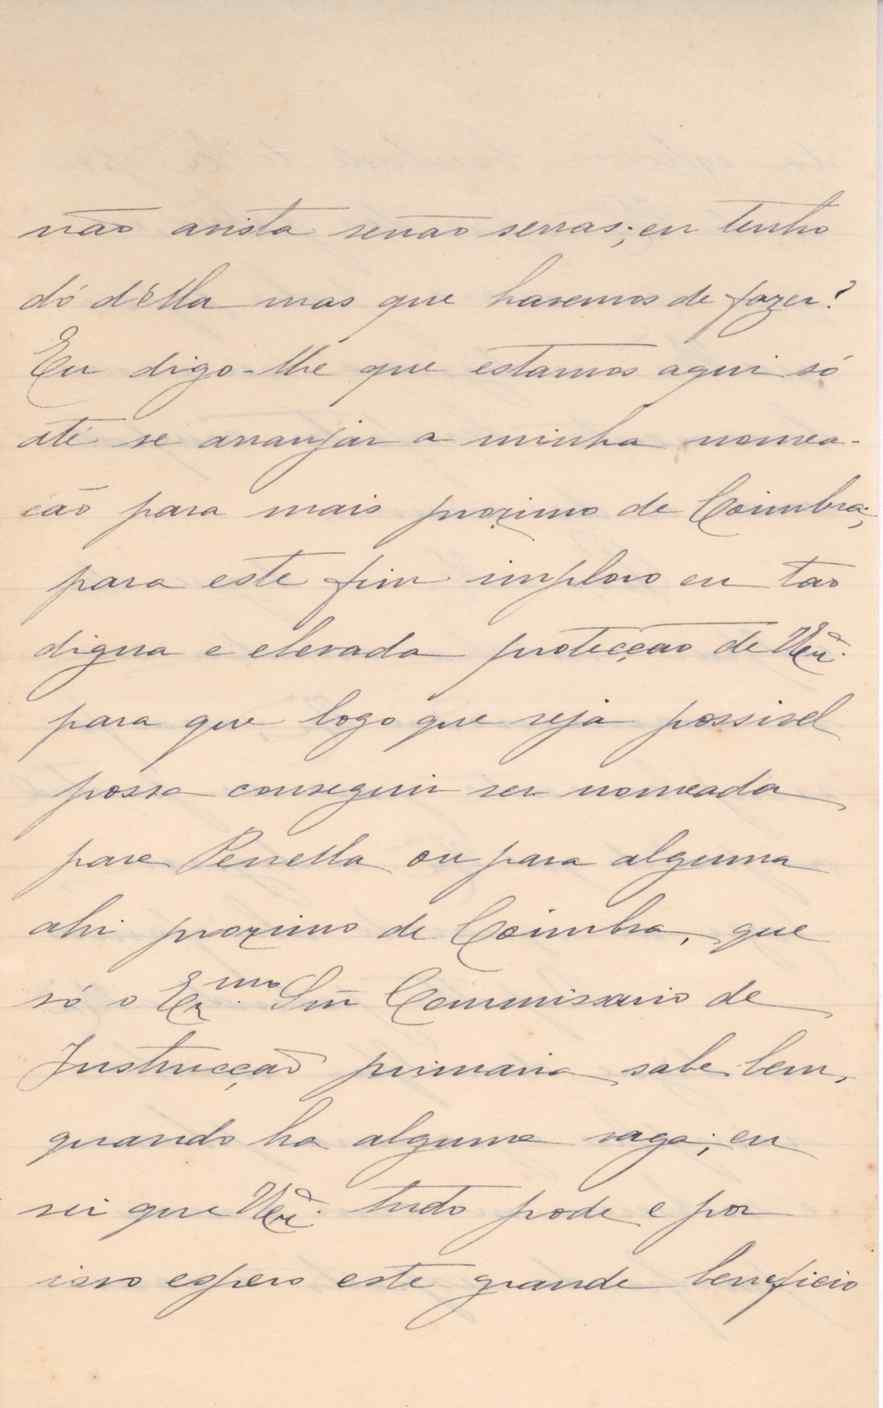 não avista senão serras; eu tenho
dó d'Ella mas que havemos de fazer?
Eu digo-lhe que estamos aqui só
até se arranjar a minha nomea-
ção para mais proximo de Coimbra;
para este fim imploro eu tão
digna e elevada protecção de VExª.
para que logo que seja possivel
possa conseguir ser nomeada
para Penella ou para alguma
ahi proximo de Coimbra, que
só o Exmo Snr Commissario de
Instrucção primaria sabe bem,
quando ha alguma vaga; eu
sei que VExª. tudo pode e por
isso espero este grande beneficio